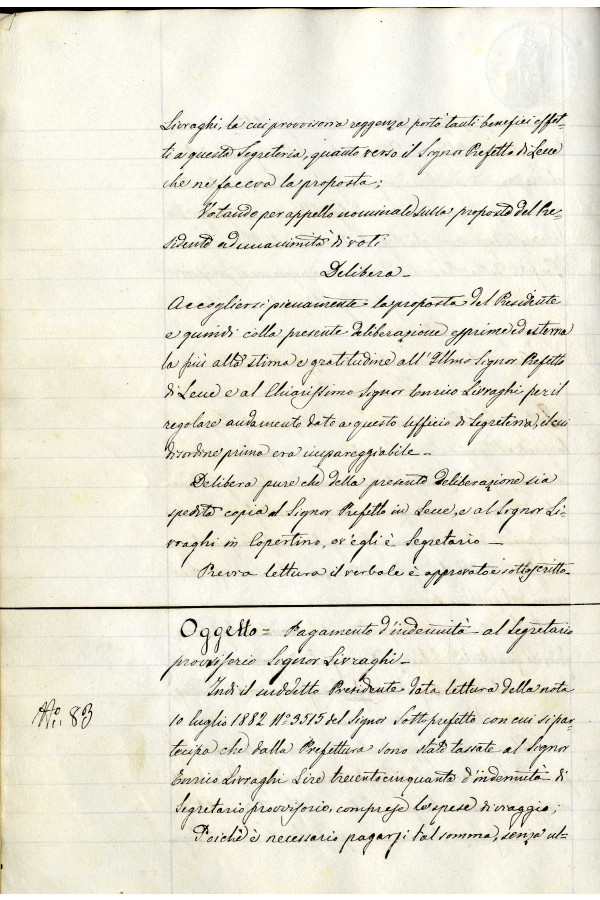 Livraghi, la cui provvisoria reggenza portò tanti benefici effet-
ti a questa Segreteria, quanto verso il Signor Prefetto di Lecce
che ne faceva la proposta;
Votando per appello nominale sulla proposta del Pre-
sidente ad unanimità di voti
Delibera_
Accogliersi pienamente la proposta del Presidente
e quindi colla presente deliberazione esprime ed esterna
la più alta stima e gratitudine all'Illmo Signor Prefetto
di Lecce e al Chiarissimo Signor Enrico Livraghi per il
regolare andamento dato a questo Ufficio di Segreteria, il cui
disordine prima era impareggiabile_
Delibera pure che della presente deliberazione sia
spedita copia al Signor Prefetto in Lecce, e al Signor Li-
vraghi in Copertino, ov'egli è Segretario_
Previa lettura il verbale è approvato e sottoscritto_
Oggetto= Pagamento d'indennità al Segretario
provvisorio Signor Livraghi_
Indi il suddetto Presidente data lettura della nota
No: 83
10 luglio 1882 No 3515 del Signor Sottoprefetto con cui si par-
tecipa che dalla Prefettura sono state tassate al Signor
Enrico Livraghi Lire trecentocinquanta d'indennità di
Segretario provvisorio, comprese le spese di viaggio;
Poichè è necessario pagarsi tal somma, senza ul-